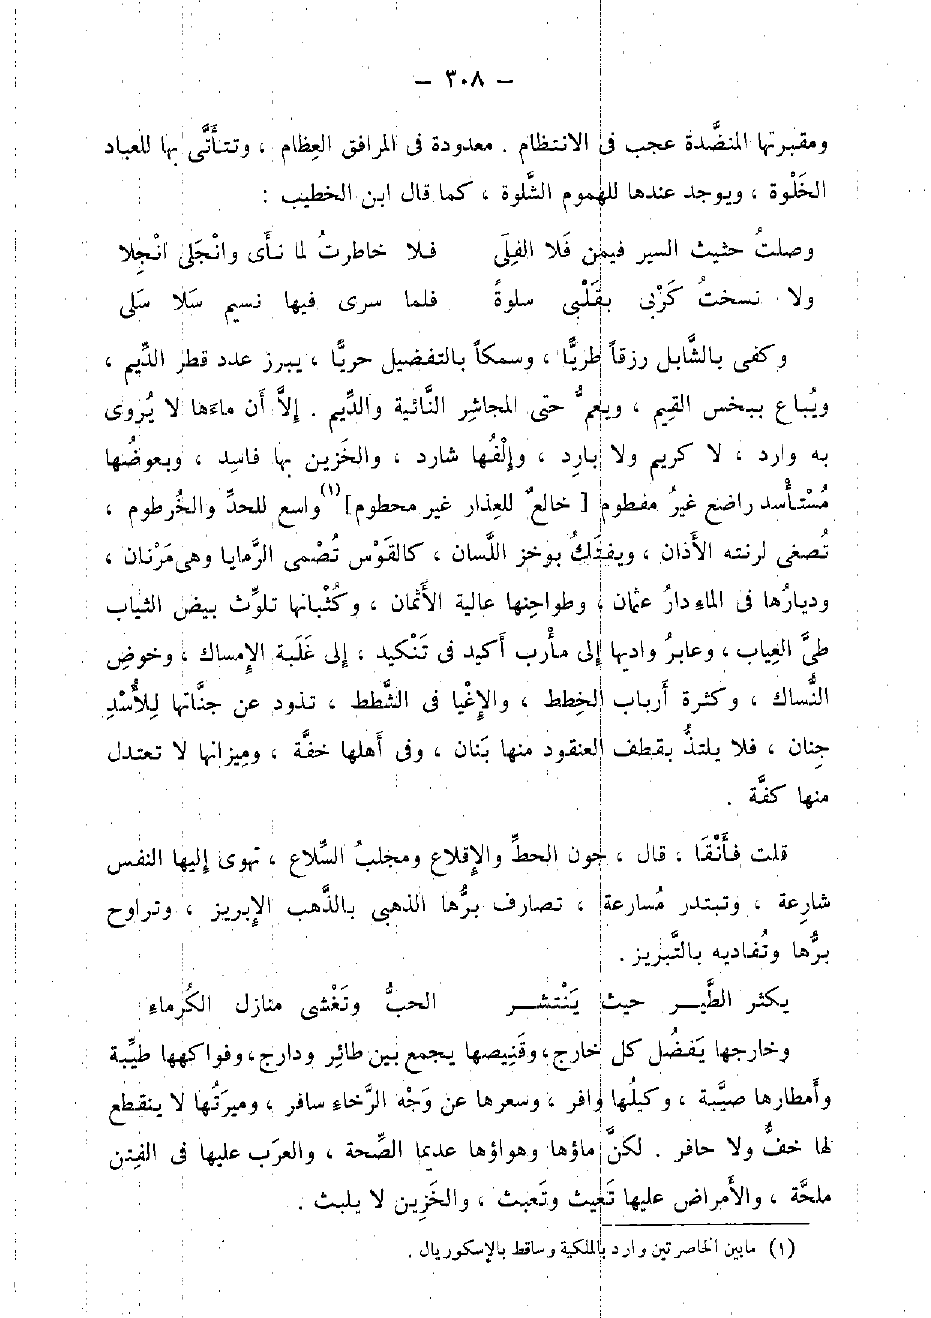 — ٣٠٨ —
ومقبرتها المنضَّدة عجب فى الانتظام . معدودة فى المرافق العِظام ، وتتأتَّى بها للعباد
الخَلْوة ، ويوجد عندها للهموم السَّلوة ، كما قال ابن الخطيب :
وصلتُ حثيث السير فيمن فَلا الفِلَى فلا خاطرتُ لما نأى وانْجَلى انْجِلا
ولا نسختُ كَرْبى بقَلْبى سلوةً فلما سرى فيها نسيم سَلا سَلى
وكفى بالشَّابل رزقاً طريًّا ، وسمكاً بالتفضيل حريًّا ، يبرز عدد قطر الدِّيم ،
ويُباع ببخس القيم ، ويعمُّ حتى المجاشِر النَّائية والدِّيم . إلاَّ أن ماءها لا يُروى
به وارد ، لا كريم ولا بارِد ، وإلْفُها شارد ، والخَزين بها فاسِد ، وبعوضُها
مُسْتأْسد راضع غيرُ مفطوم [ خالعٌ للعِذار غير محطوم](١) واسع للحدِّ والخُرطوم ،
تُصغى لرنته الأَذان ، ويفتكُ بوخز اللَّسان ، كالقَوْس تُصْمى الرَّمايا وهى مَرْنان ،
وديارُها فى الماء دارُ عثمان ، وطواحِنها عالية الأَثمان ، وكُثْبانها تلوِّث بيض الثياب
طىَّ العِياب ، وعابرُ واديها إلى مأْرب أكيد فى تَنْكيد ، إلى غَلَبة الإِمساك ، وخوضِ
النُّساك ، وكثرة أَرباب الخِطط ، والإِغْيا فى الشَّطط ، تذود عن جنَّاتها لِلأُسْدِ
جِنان ، فلا يلتذُّ بقطف العنقود منها بَنان ، وفى أهلها خفَّة ، ومِيزانها لا تعتدل
منها كفَّة .
قلت فأَنْفَا ، قال ، جون الحطِّ والإِقلاع ومجلبُ السِّلاع ، تهوى إليها النفس
شارِعة ، وتبتدر مُسارعة ، تصارف برُّها الذهبى بالذَّهب الإِبريز ، وتراوح
برُّها وتُفاديه بالتَّبريز .
يكثر الطَّيـر حيث يَنْتشـر الحبُّ وتَغْشى منازل الكُرماء
وخارجها يَفضُل كل خارج ، وقَنِيصها يجمع بين طائِر ودارج ، وفواكهها طيِّبة
وأَمطارها صيِّبة ، وكيلُها وافر ، وسعرها عن وَجْه الرَّخاء سافر ، وميرَتُها لا ينقطع
لها خفٌّ ولا حافر . لكنَّ ماؤها وهواؤها عديما الصِّحة ، والعرَب عليها فى الفِتن
ملحَّة ، والأَمراض عليها تَعِيث وتَعبث ، والخَزِين لا يلبث .
(١) مابين الخاصرتين وارد بالملكية وساقط بالإسكوريال .